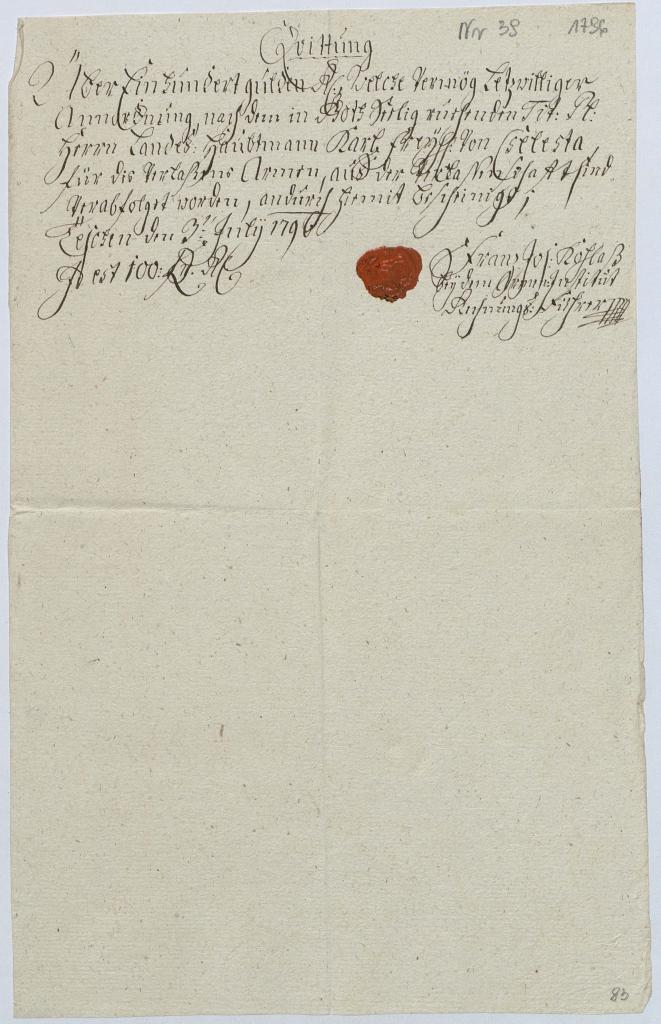 Nr 38 1796
Quittung
Über Einhundert gulden Rh: Welche Vermög Letzwilliger
Annordnung, nach dem in Gott Seelig ruehenden Tit: Pl:
Herrn Landes: Haubtmann Karl Freyh: von Cselesta,
für die Verlaßens Armen, aus der Verlassenschaft sind
Verabfolget worden, andurch hiemit bescheinige;
Teschen den 3t July 1796
Id est 100: f: Rh
Franz Jos: Koßlaß
bey dem Armen Institut
Rechnungs: Führer
83